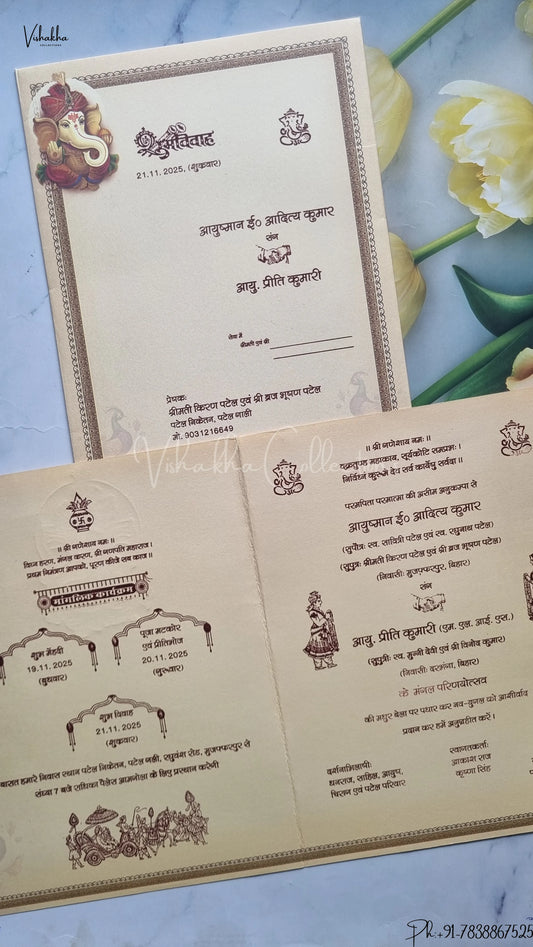 Vishakha
COLLECTIONS
शुभविवाह
21.11.2025, (शुक्रवार)
आयुष्मान ई० आदित्य कुमार
संग
आयु. प्रीति कुमारी
सेवा में
श्रीमती एवं श्री
प्रेषकः
श्रीमती किरण पटेल एवं श्री ब्रज भूषण पटेल
पटेल निकेतन, पटेल गली
मो. 9031216649
Vishakha Collections
॥ श्री गणेशाय नमः ॥
विघ्न हरण, मंगल करण, श्री गणपति महाराज।
प्रथम निमंत्रण आपको, पूरण कीजे सब काज ॥
मांगलिक कार्यक्रम
शुभ मेंहदी
19.11.2025
(बुधवार)
पूजा मटकोर
एवं प्रीतिभोज
20.11.2025
(गुरूवार)
शुभ विवाह
21.11.2025
(शुक्रवार)
बारात हमारे निवास स्थान पटेल निकेतन, पटेल गली, रघुवंश रोड, मुजफ्फरपुर से
संध्या 7 बजे राधिका पैलेस आमगोला के लिए प्रस्थान करेगी
॥ श्री गणेशाय नमः ॥
वक्रतुण्ड महाकाय, सूर्यकोटि समप्रभः।
निर्विघ्नं कुरूमे देव सर्व कार्येषु सर्वदा ॥
परमपिता परमात्मा की असीम अनुकम्पा से
आयुष्मान ई० आदित्य कुमार
(सुपौत्रः स्व. सावित्री पटेल एवं स्व. रघुनाथ पटेल)
(सुपुत्रः श्रीमती किरण पटेल एवं श्री ब्रज भूषण पटेल)
(निवासीः मुजफ्फरपुर, बिहार)
संग
आयु. प्रीति कुमारी (एम. एल. आई. एस.)
(सुपुत्रीः स्व. मुन्नी देवी एवं श्री विनोद कुमार)
(निवासीः दरभंगा, बिहार)
के मंगल परिणयोत्सव
की मधुर बेला पर पधार कर नव-युगल को आशीर्वाद
प्रदान कर हमें अनुग्रहीत करें।
दर्शनाभिलाषीः
धनराज, साहिल, आयुष,
चिराग एवं पटेल परिवार
स्वागतकर्ताः
आकाश राज
कृष्णा सिंह
Ph:+91-7838867525